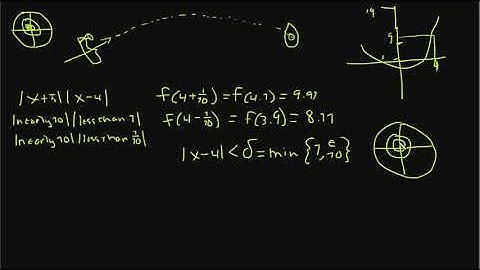 |x+5||x-4|
|nearly 10||less than 1|
|nearly 10||less than 1/10|
f(4+1/10)=f(4.1)=9.91
f(4-1/10)=f(3.9)=8.11
|x-4|<δ=min{1,ε/10}
9
4